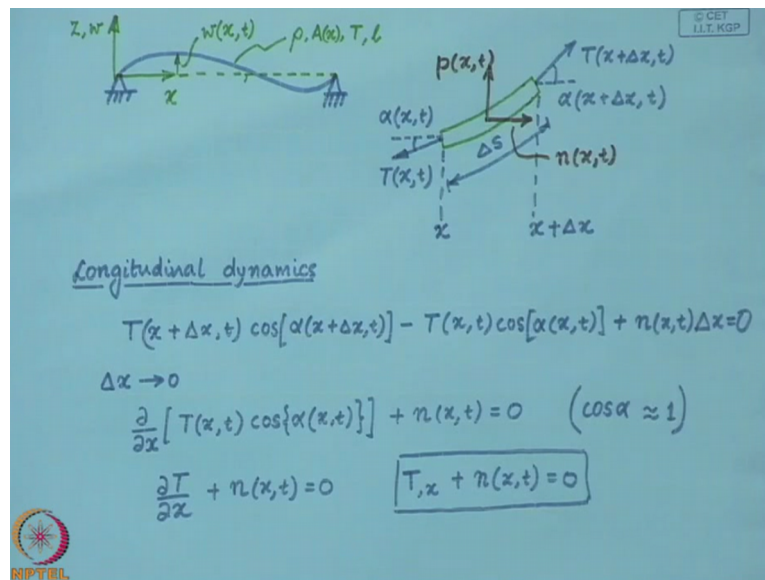 © CET
I.I.T. KGP
z, w
w(x,t)
ρ, A(x), T, l
x
p(x,t)
T(x+Δx,t)
α(x+Δx,t)
α(x,t)
T(x,t)
ΔS
n(x,t)
x
x+Δx
Longitudinal dynamics
T(x+Δx,t) cos[α(x+Δx,t)] - T(x,t) cos[α(x,t)] + n(x,t)Δx=0
Δx → 0
∂/∂x [T(x,t) cos{α(x,t)}] + n(x,t) = 0 (cosα ≈ 1)
∂T/∂x + n(x,t) = 0 T,x + n(x,t) = 0
NPTEL